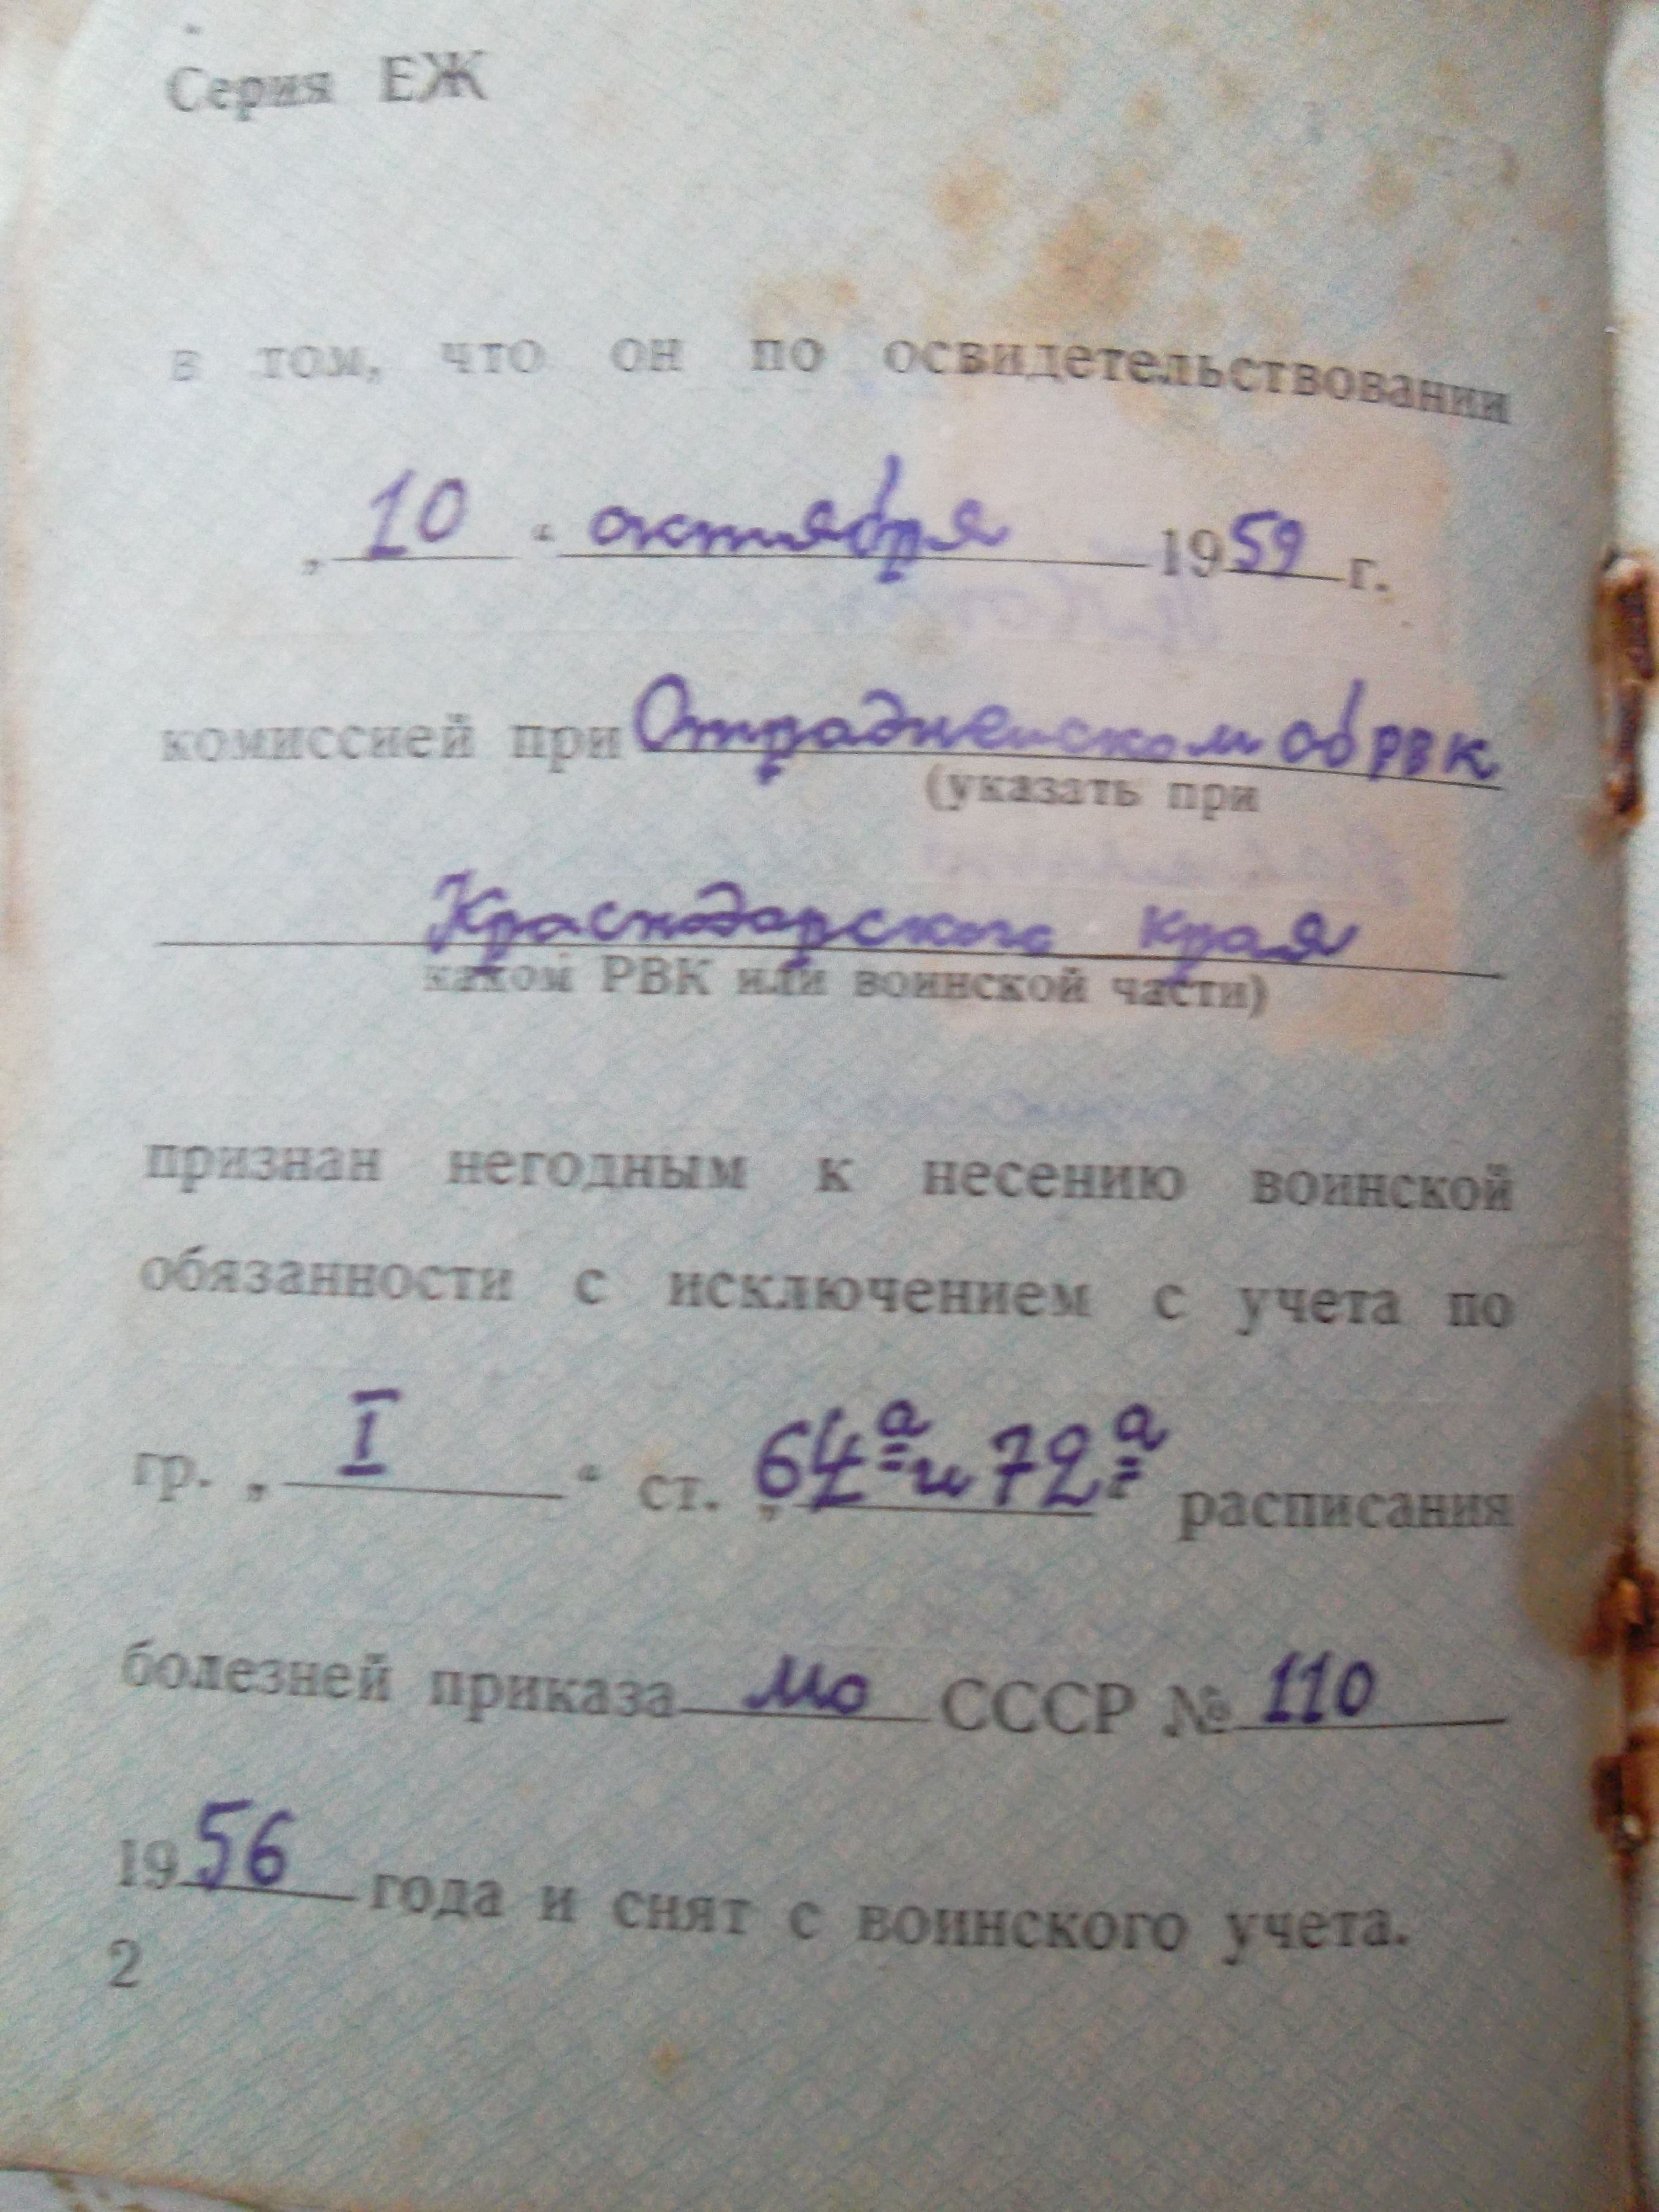 Серия ЕЖ
в том, что он по освидетельствовании
„ 10 “ октября 1959 г.
комиссией при Отрадненском обРВК
(указать при
Краснодарского края
каком РВК или воинской части)
признан негодным к несению воинской
обязанности с исключением с учета по
гр. „ I “ ст. „ 64а и 72а расписания
болезней приказа МО СССР № 110
1956 года и снят с воинского учета.
2